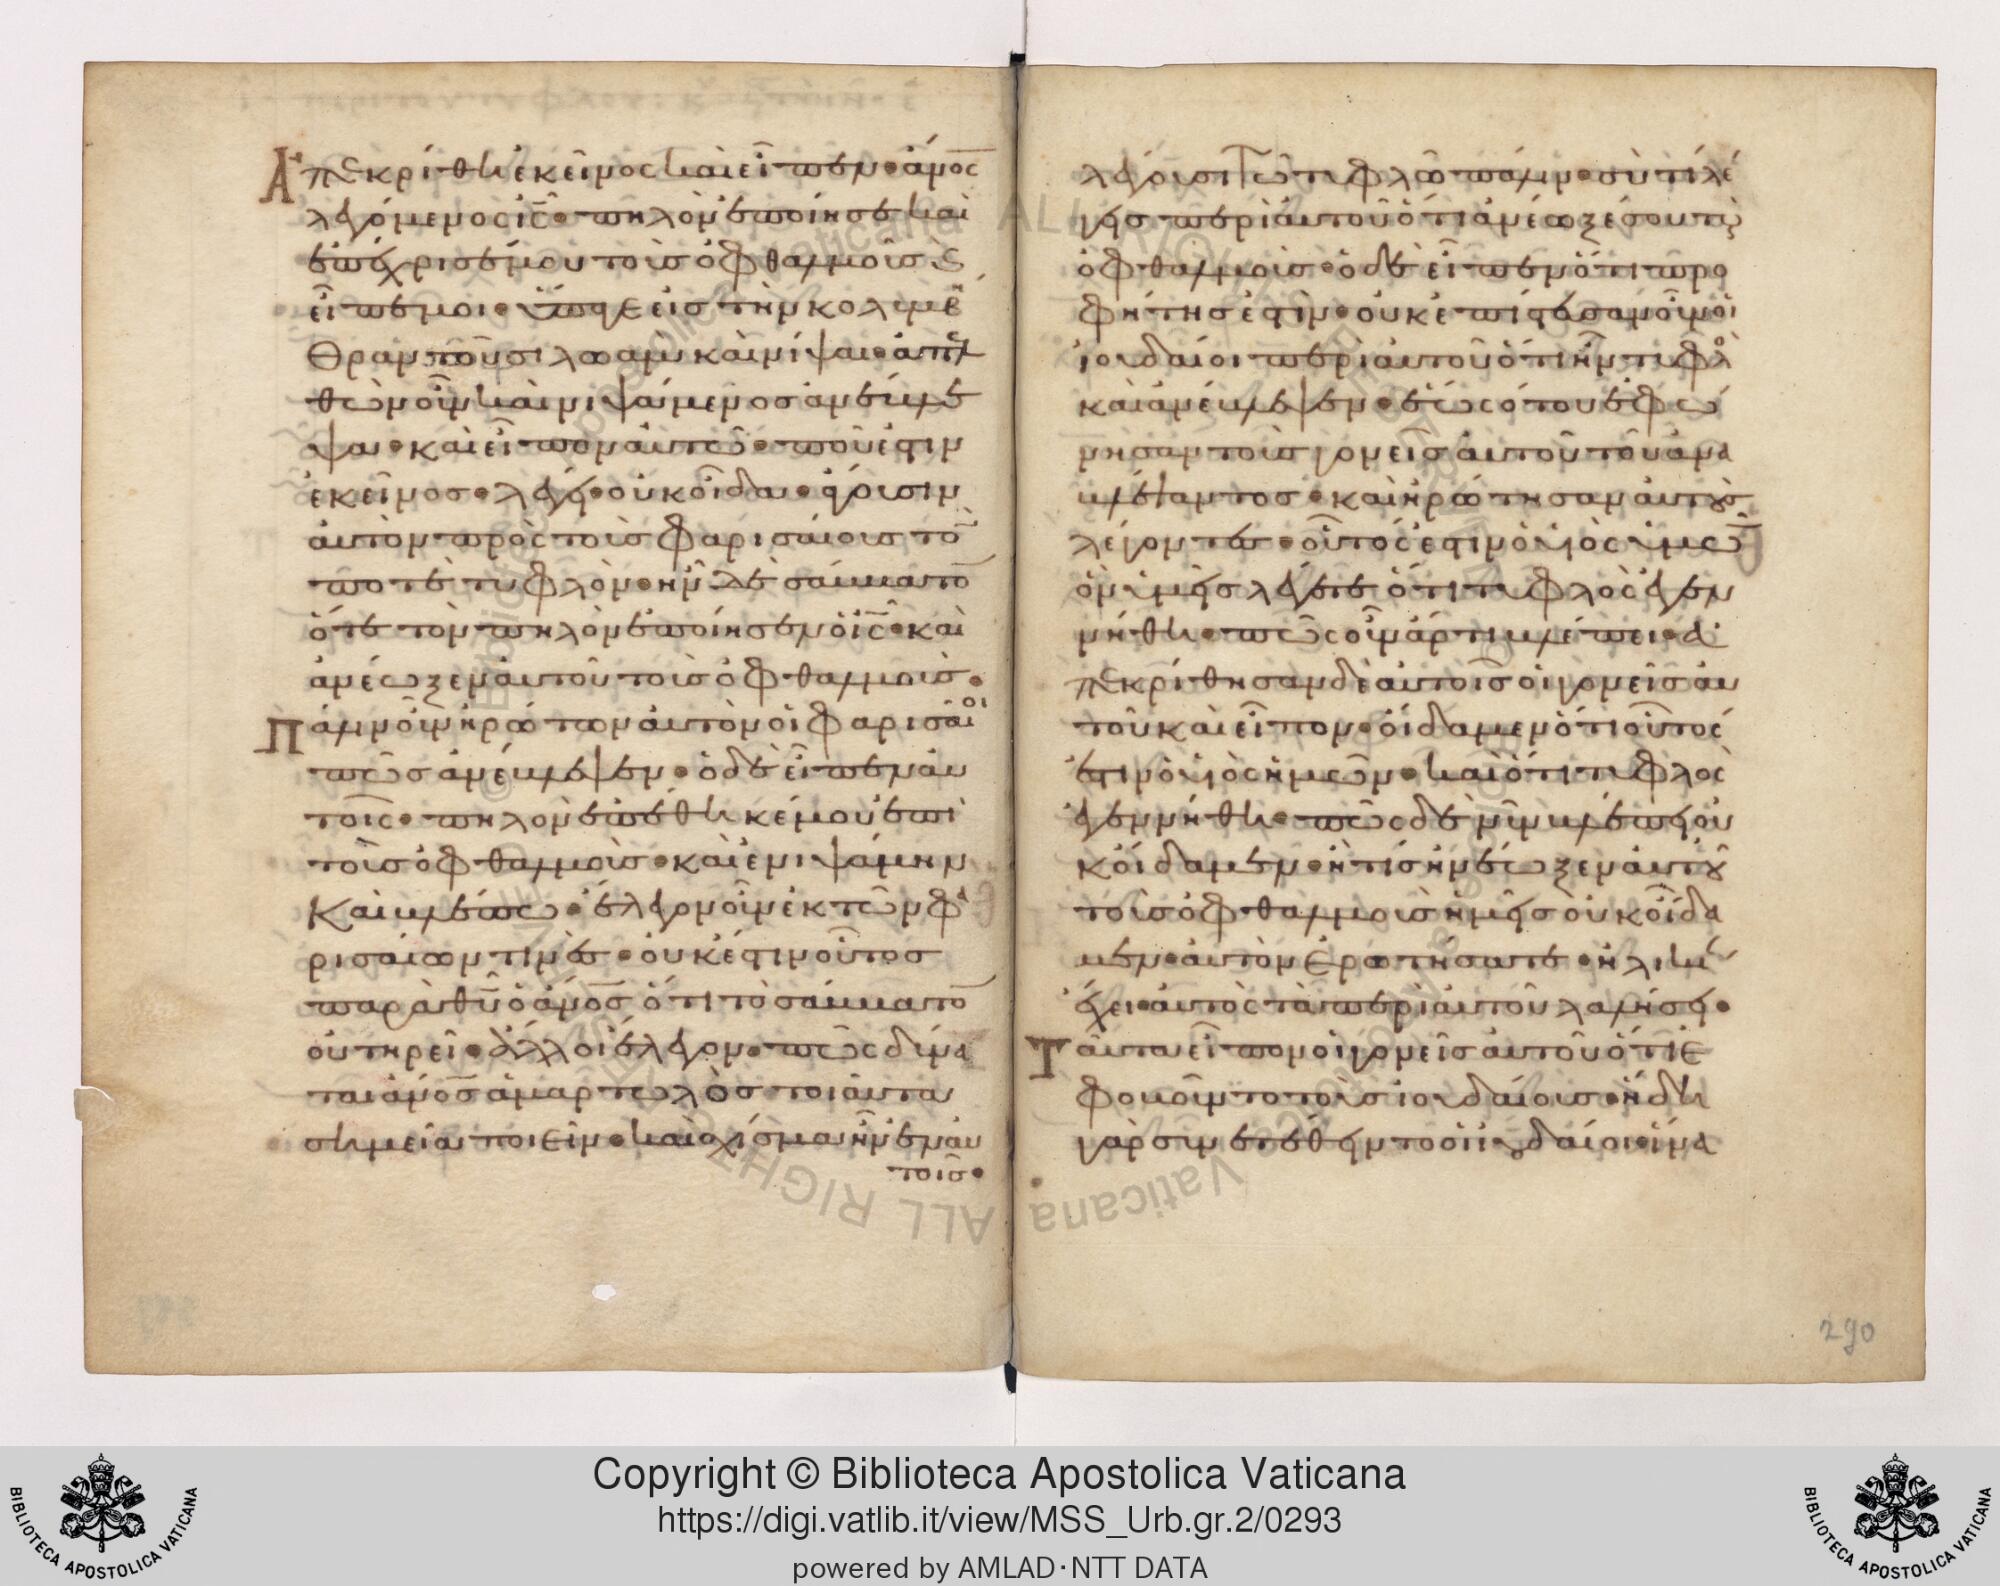 Ἀπεκρίθη ἐκεῖνος καὶ εἶπεν· ἄν̅ο̅ς
λεγόμενος ι̅ς̅· πηλὸν ἐποίησε καὶ
ἐπέχρισέ μου τοὺς ὀφθαλμοὺς κ(αὶ)
εἶπέ μοι· ὕπαγε εἰς τὴν κολυμβ
θραν τοῦ σιλωὰμ καὶ νίψαι· ἀπελ
θὼν οὖν καὶ νιψάμενος ἀνέβλε
ψα· καὶ εἶπον αὐτῶ· ποῦ ἐστιν
ἐκεῖνος· λέγει· οὐκ οἶδα· ἄγουσιν
αὐτὸν πρὸς τοὺς φαρισαίους τό̅
ποτὲ τυφλὸν· ἦν δὲ σάββατο̅
ὅτε τὸν πηλὸν ἐποίησεν ὁ ι̅ς̅· καὶ
ἀνέωξεν αὐτοῦ τοὺς ὀφθαλμούς·
Πάλιν οὖν ἠρώτων αὐτὸν οἱ φαρισαῖοι
πῶς ἀνέβλεψεν· ὁ δὲ εἶπεν αὐ
τοῖς· πηλὸν ἐπέθηκέ μου ἐπὶ
τοὺς ὀφθαλμοὺς· καὶ ἐνιψάμην
καὶ βλέπω· ἔλεγον οὖν ἐκ τῶν φα
ρισαίων τινὲς· οὐκ ἔστιν οὗτος
παρὰ θ̅υ̅ ὁ ἄν̅ο̅ς ὅτι τὸ σάββατο̅
οὐ τηρεῖ· ἄλλοι ἔλεγον· πῶς δύνα
ται ἄν̅ο̅ς ἁμαρτωλὸς τοιαῦτα
σημεῖα ποιεῖν· καὶ σχίσμα ἦν ἐν αὐ
τοῖς·
λέγουσι τῶ τυφλῶ πάλιν· σὺ τί λέ
γεις περὶ αὐτοῦ ὅτι ἀνέωξέ σου τοὺς
ὀφθαλμούς· ὁ δὲ εἶπεν ὅτι προ
φήτης ἐστὶν· οὐκ ἐπίστευσαν οὖν οἱ
ἰουδαίοι περὶ αὐτοῦ ὅτι ἦν τυφλὸ
καὶ ἀνέβλεψεν· ἕως ὅτου ἐφώ
νησαν τοὺς γονεῖς αὐτοῦ τοῦ ἀνα
βλέψαντος· καὶ ἠρώτησαν αὐτοὺς
λέγοντες· οὗτός ἐστιν ὁ υἱὸς ὑμῶ̅
ὃν ὑμεῖς λέγετε ὅτι τυφλὸς ἐγεν
νήθη· πῶς οὖν ἄρτι βλέπει· ἀ
πεκρίθησαν δὲ αὐτοῖς οἱ γονεῖς αὐ
τοῦ καὶ εἶπον· οἴδαμεν ὅτι οὗτός
ἐστιν ὁ υἱὸς ἡμῶν· καὶ ὅτι τυφλὸς
ἐγεννήθη· πῶς δὲ νῦν βλέπει οὐ
κ οἴδαμεν· ἢ τίς ἤνέωξεν αὐτοῦ
τοὺς ὀφθαλμοὺς ἡμεῖς οὐκ οἴδα
μεν· αὐτὸν ἐρωτήσατε· ἡλικί
ἔχει· αὐτὸς τὰ περὶ αὐτοῦ λαλήσει·
Ταῦτα εἶπον οἱ γονεῖς αὐτοῦ ὅτι ἐ
φοβοῦντο τοὺς ἰουδαίους· ἤδη
γὰρ συνετέθειντο οἱ ἰουδαίοι· ἵνα
290
Copyright © Biblioteca Apostolica Vaticana
https://digi.vatlib.it/view/MSS_Urb.gr.2/0293
powered by AMLAD·NTT DATA
BIBLIOTECA APOSTOLICA VATICANA
BIBLIOTECA APOSTOLICA VATICANA